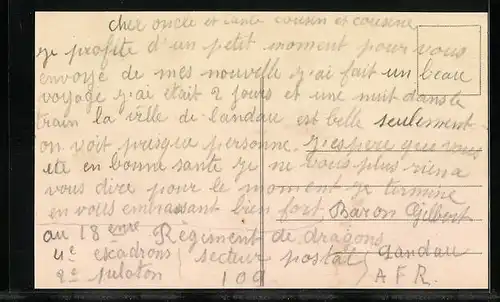 cher oncle et tante cousin et cousine
je profite d'un petit moment pour vous
envoyé de mes nouvelle j'ai fait un beau
voyage j'ai etait 2 jours et une nuit dans le
train la ville de landau est belle seulement
on voit presque personne. j'espere que vous
ete en bonne santé je ne vous plus rien a
vous dire pour le moment je termine
en vous embrassant bien fort, Baron Gilbert
au 18 eme Regiment de dragons
4e escadrons secteur postal Landau
2e peloton 109 A F R.